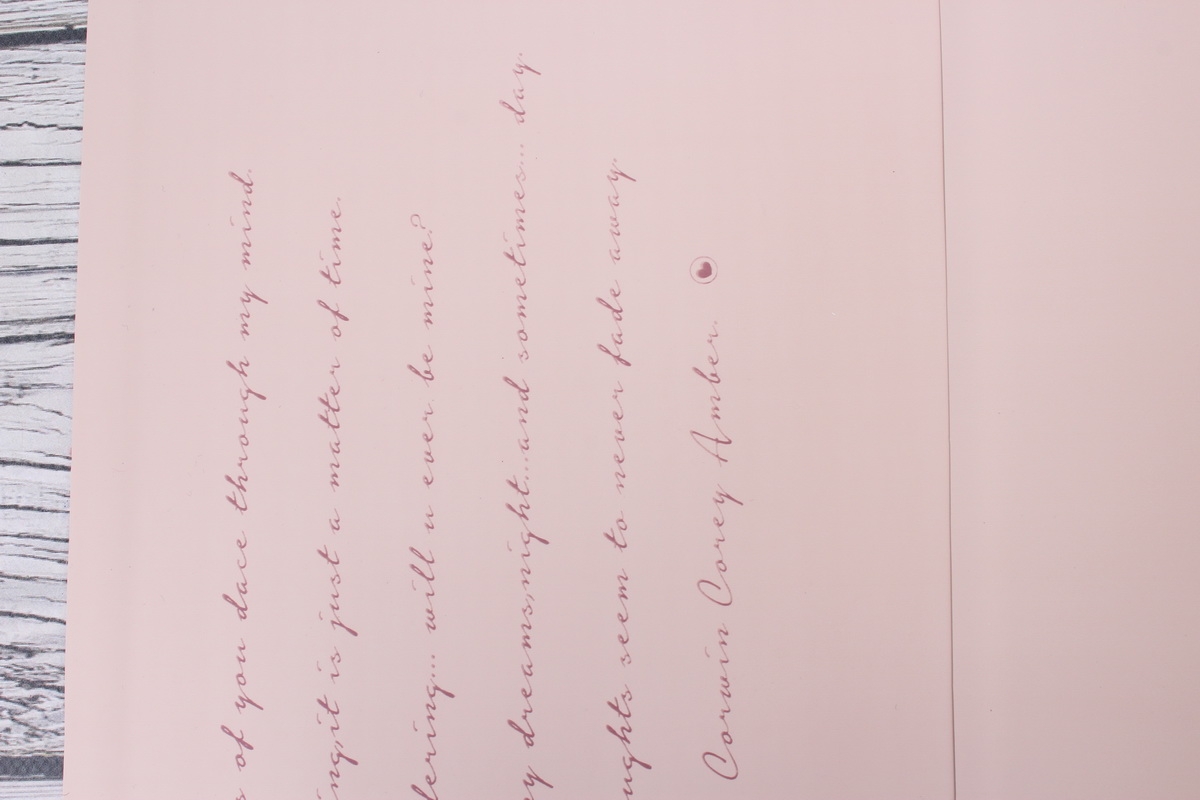 s of you dace through my mind.
ing,it is just a matter of time.
dering... will u ever be mine?
y dreams,night...and sometimes... day.
ughts seem to never fade away.
Corwin Corey Amber.